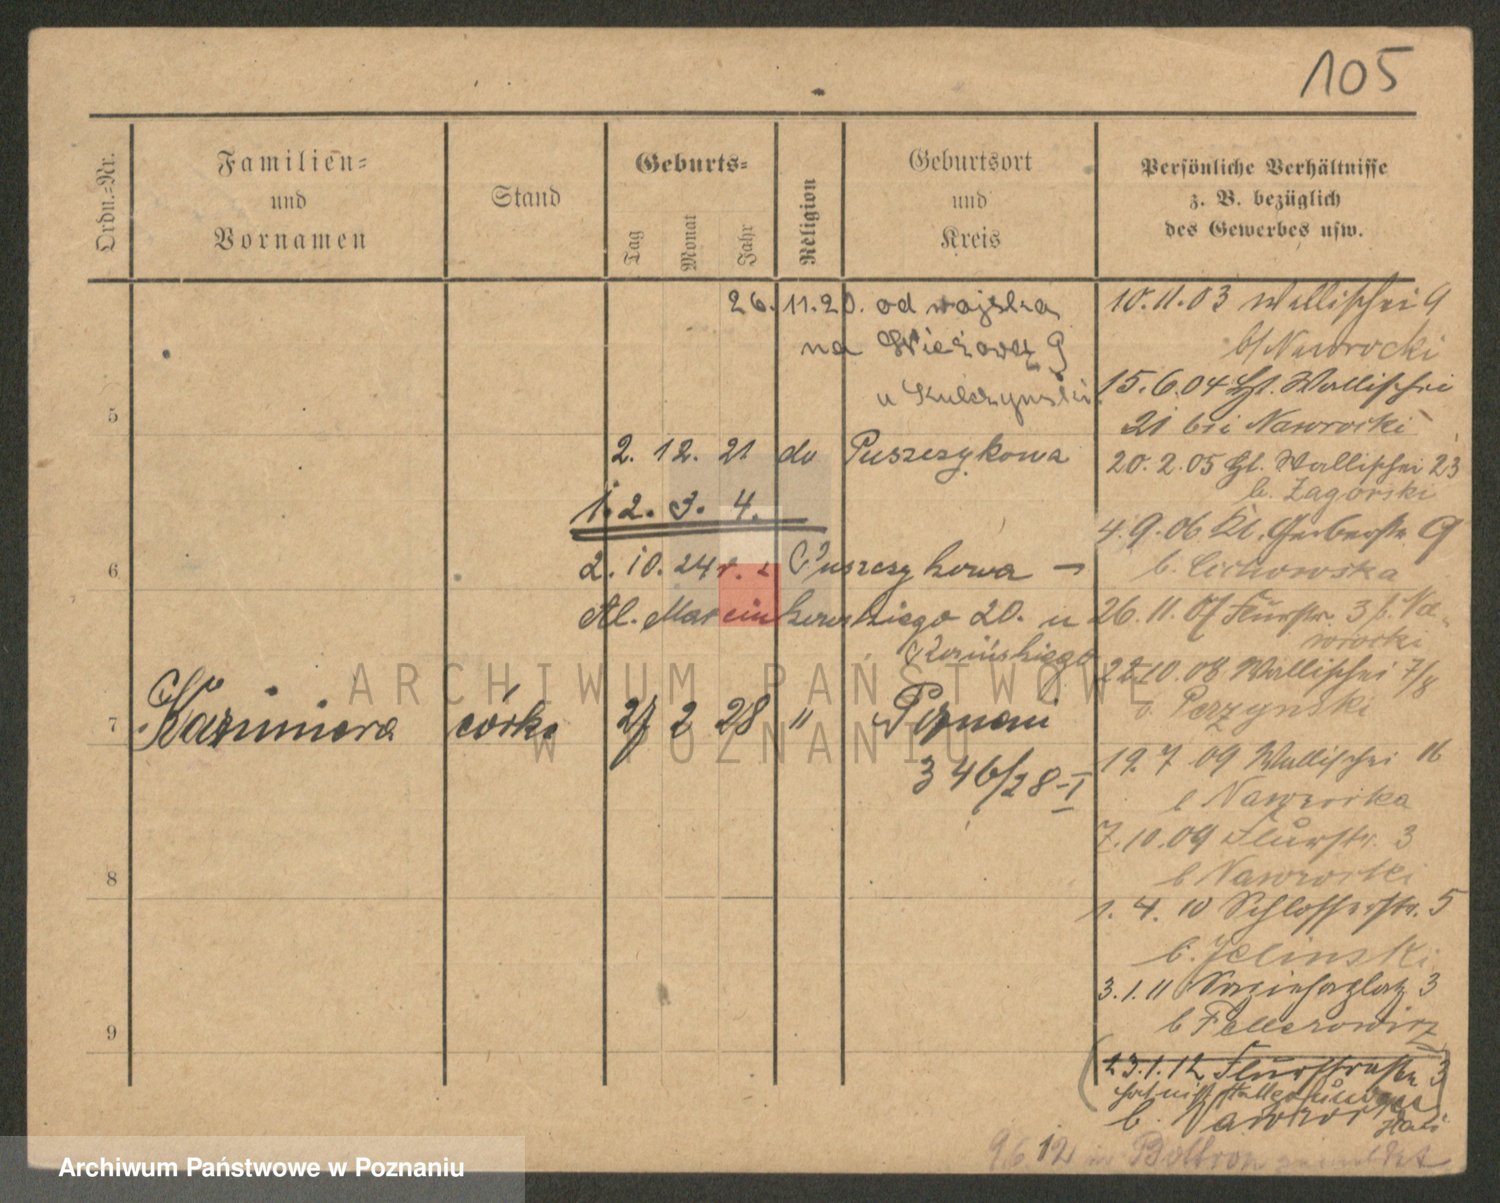 105
Ordn.-Nr.
Familien-
und
Vornamen
Stand
Geburts-
Tag
Monat
Jahr
Religion
Geburtsort
und
Kreis
Persönliche Verhältnisse
z. B. bezüglich
des Gewerbes usw.
26. 11. 20. od wojska
na Wieżową 9
u Kulczynski
5
2. 12. 21 do Puszczykowa
1. 2. 3. 4.
6
2. 10. 24 r. z Puszczykowa –
Al. Marcinkowskiego 20. u
7
Kazimiera córka 27 2 28 " Poznań
346/28-I
8
9
10. 11. 03 Wallischei 9
b/ Nawrocki
15. 6. 04 Wallischei
21 bei Nawrocki
20. 2. 05 Wallischei 23
b. Zagorski
4. 9. 06 Kl. Gerberstr. 9
b. Cichowska
26. 11. 07 Flurstr. 3 b. Na-
wrocki
22 10. 08 Wallischei 7/8
b. Perzynski
19. 7 09 Wallischei 16
b Nawrocka
7. 10. 09 Flurstr. 3
b Nawrocki
1. 4. 10 Schlosserstr. 5
b. Jelinski
3. 1. 11 3
b
23. 1. 12 Flurstrasse 3
b.
9 6 12
ARCHIWUM PAŃSTWOWE
W POZNANIU
Archiwum Państwowe w Poznaniu